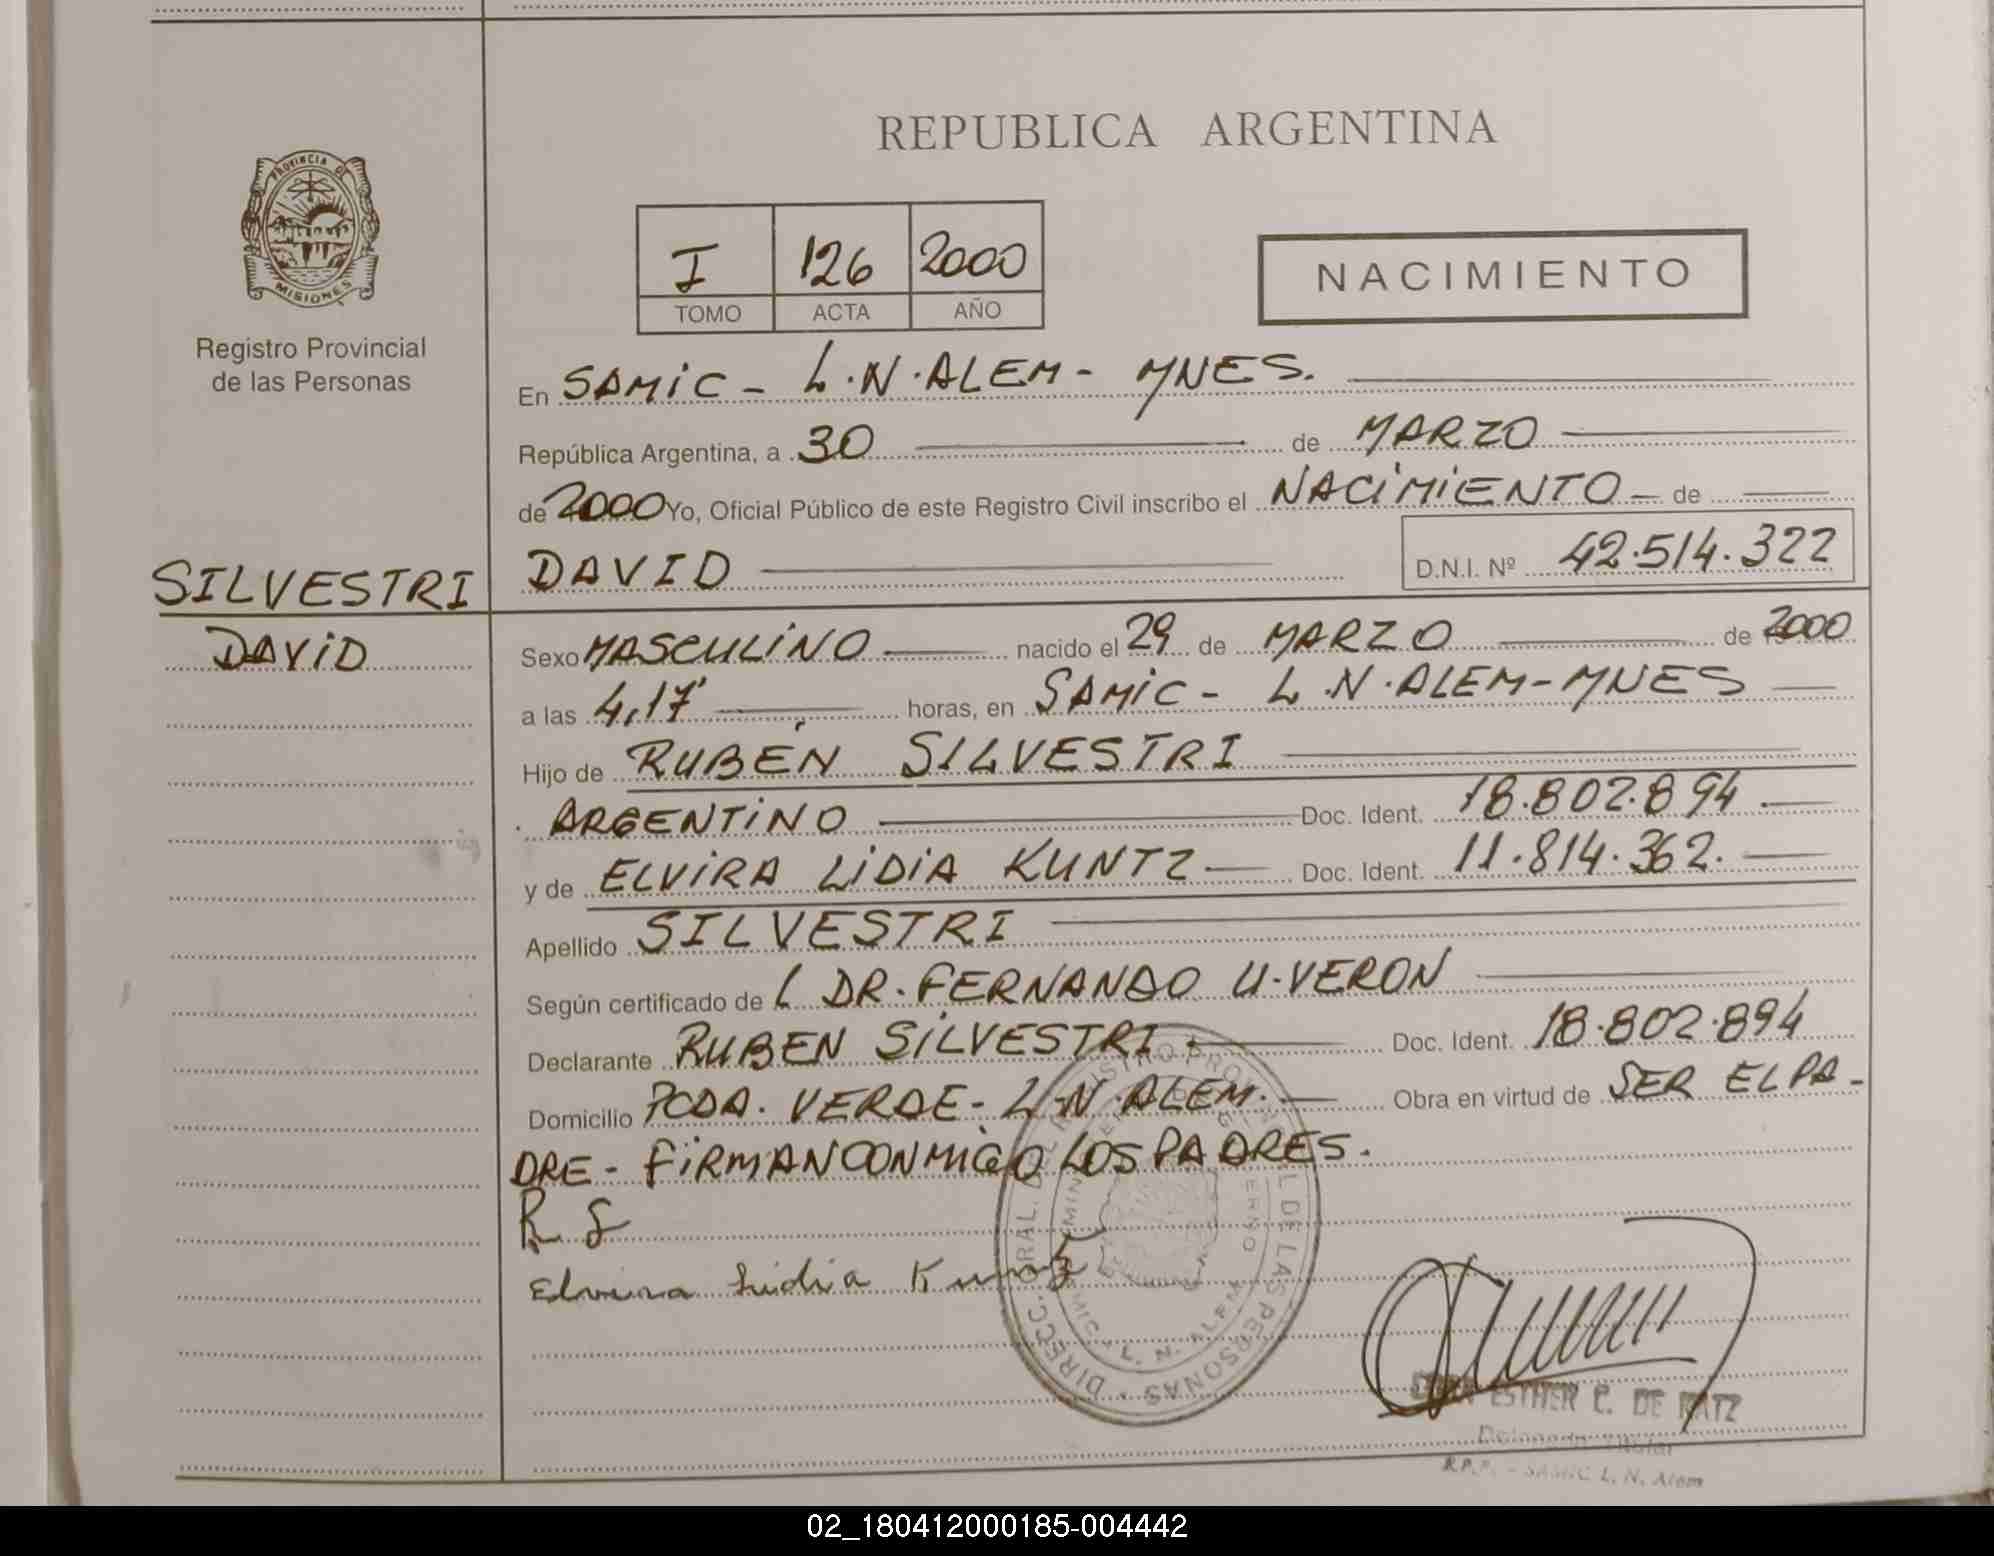 REPUBLICA ARGENTINA
PROVINCIA DE
MISIONES
Registro Provincial
de las Personas
I 126 2000
TOMO ACTA AÑO
NACIMIENTO
En SAMIC - L.N. ALEM - MNES.
República Argentina, a 30 de MARZO
de 2000 Yo, Oficial Público de este Registro Civil inscribo el NACIMIENTO - de
SILVESTRI DAVID D.N.I. Nº 42.514.322
DAVID
Sexo MASCULINO nacido el 29 de MARZO de 2000
a las 4,17' horas, en SAMIC - L.N. ALEM - MNES
Hijo de RUBÉN SILVESTRI
ARGENTINO Doc. Ident. 18.802.894
y de ELVIRA LIDIA KUNTZ Doc. Ident. 11.814.362.
Apellido SILVESTRI
Según certificado de L DR. FERNANDO U. VERON
Declarante RUBEN SILVESTRI. Doc. Ident. 18.802.894
Domicilio PCDA. VERDE - L.N. ALEM. Obra en virtud de SER EL PA-
DRE - FIRMAN CONMIGO LOS PADRES.
R S
Elvira Lidia Kuntz
DIRECC. GRAL. DEL REGISTRO PROVINCIAL DE LAS PERSONAS
SAMIC L. N. ALEM
ESTHER C. DE KATZ
Delegada Titular
R.P.P. - SAMIC L. N. Alem
02_180412000185-004442